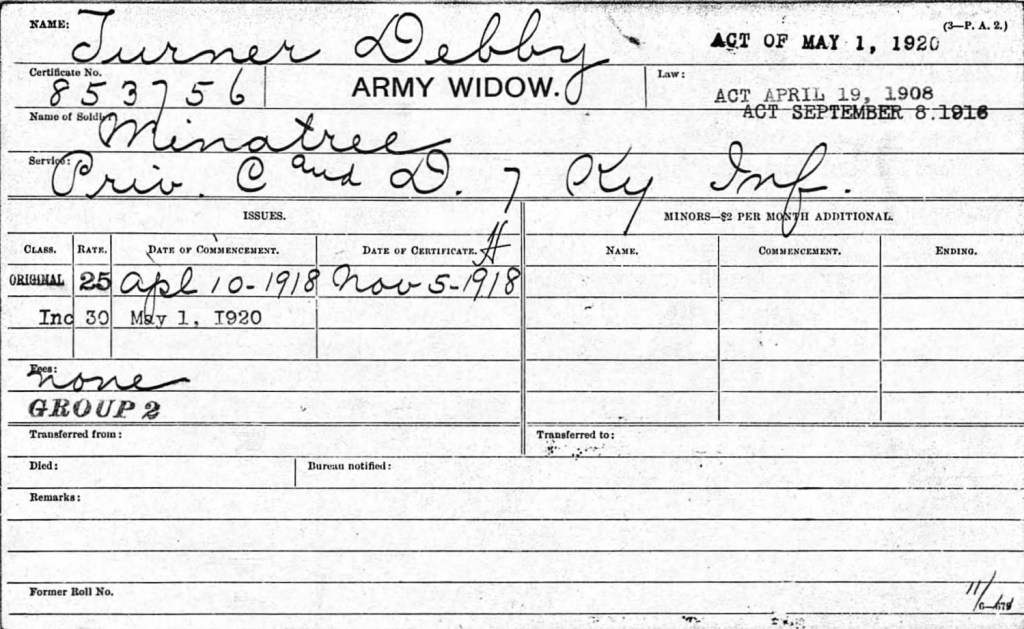 (3—P. A. 2.)
NAME: Turner Debby
ACT OF MAY 1, 1920
Certificate No. 853756
ARMY WIDOW.
Law: ACT APRIL 19, 1908
ACT SEPTEMBER 8. 1916
Name of Soldier: Minatree
Service: Priv. C and D. 7 Ky Inf.
ISSUES.
MINORS—$2 PER MONTH ADDITIONAL.
CLASS. RATE. DATE OF COMMENCEMENT. DATE OF CERTIFICATE. NAME. COMMENCEMENT. ENDING.
ORIGINAL 25 Apl 10-1918 Nov 5-1918
Inc 30 May 1, 1920
Fees: none
GROUP 2
Transferred from: Transferred to:
Died: Bureau notified:
Remarks:
Former Roll No.